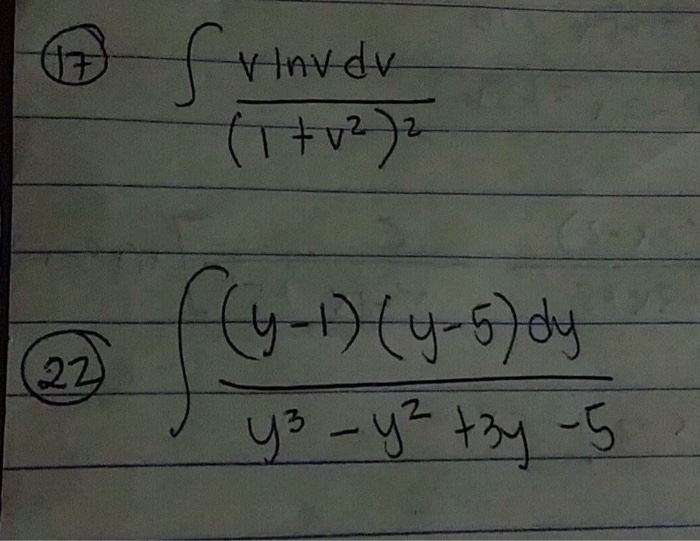 17 ∫ v ln v dv
(1 + v²)²
22 ∫ (y-1)(y-5) dy
y³ - y² + 3y - 5